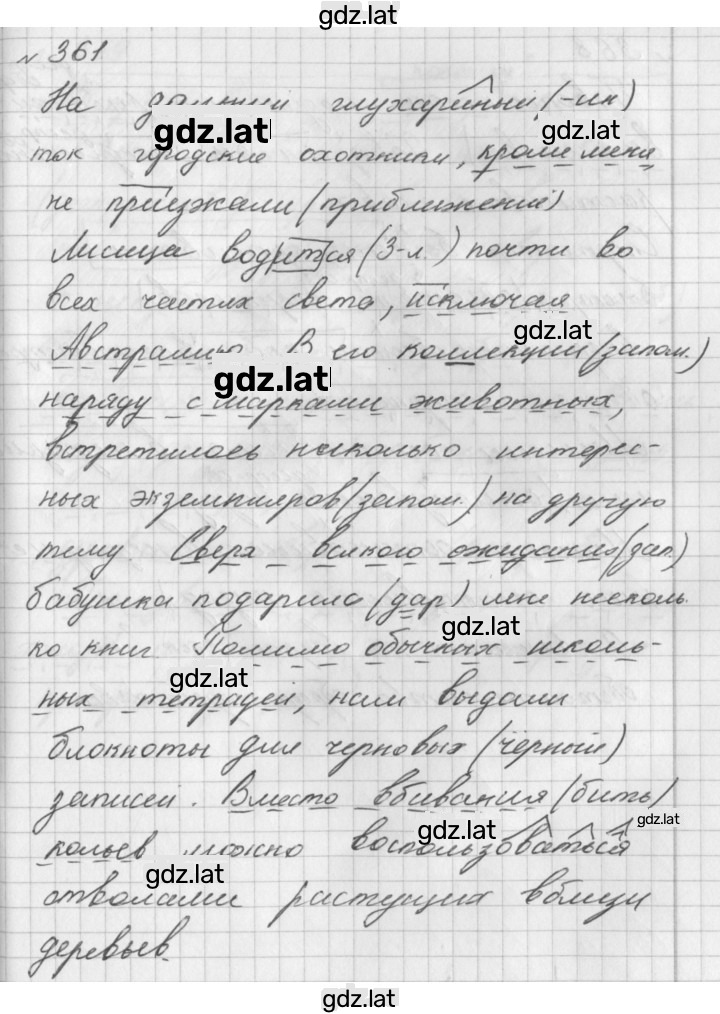 gdz.lat
№ 361
На глухариный (-ин)
gdz.lat gdz.lat
ток городские охотники, кроме меня,
не приезжали (приближение)
Лисица водится (3-л.) почти во
всех частях света, исключая
gdz.lat
Австралию. В его коллекции (запом.)
gdz.lat
наряду с марками животных,
встретилось несколько интерес-
ных экземпляров (запом.) на другую
тему Сверх всякого ожидания (зап.)
бабушка подарила (дар) мне несколь-
gdz.lat
ко книг Помимо обычных школь-
gdz.lat
ных тетрадей, нам выдали
блокноты для черновых (чёрный)
записей. Вместо вбивания (бить)
gdz.lat gdz.lat
кольев можно воспользоваться
gdz.lat
стволами растущих вблизи
деревьев.
gdz.lat